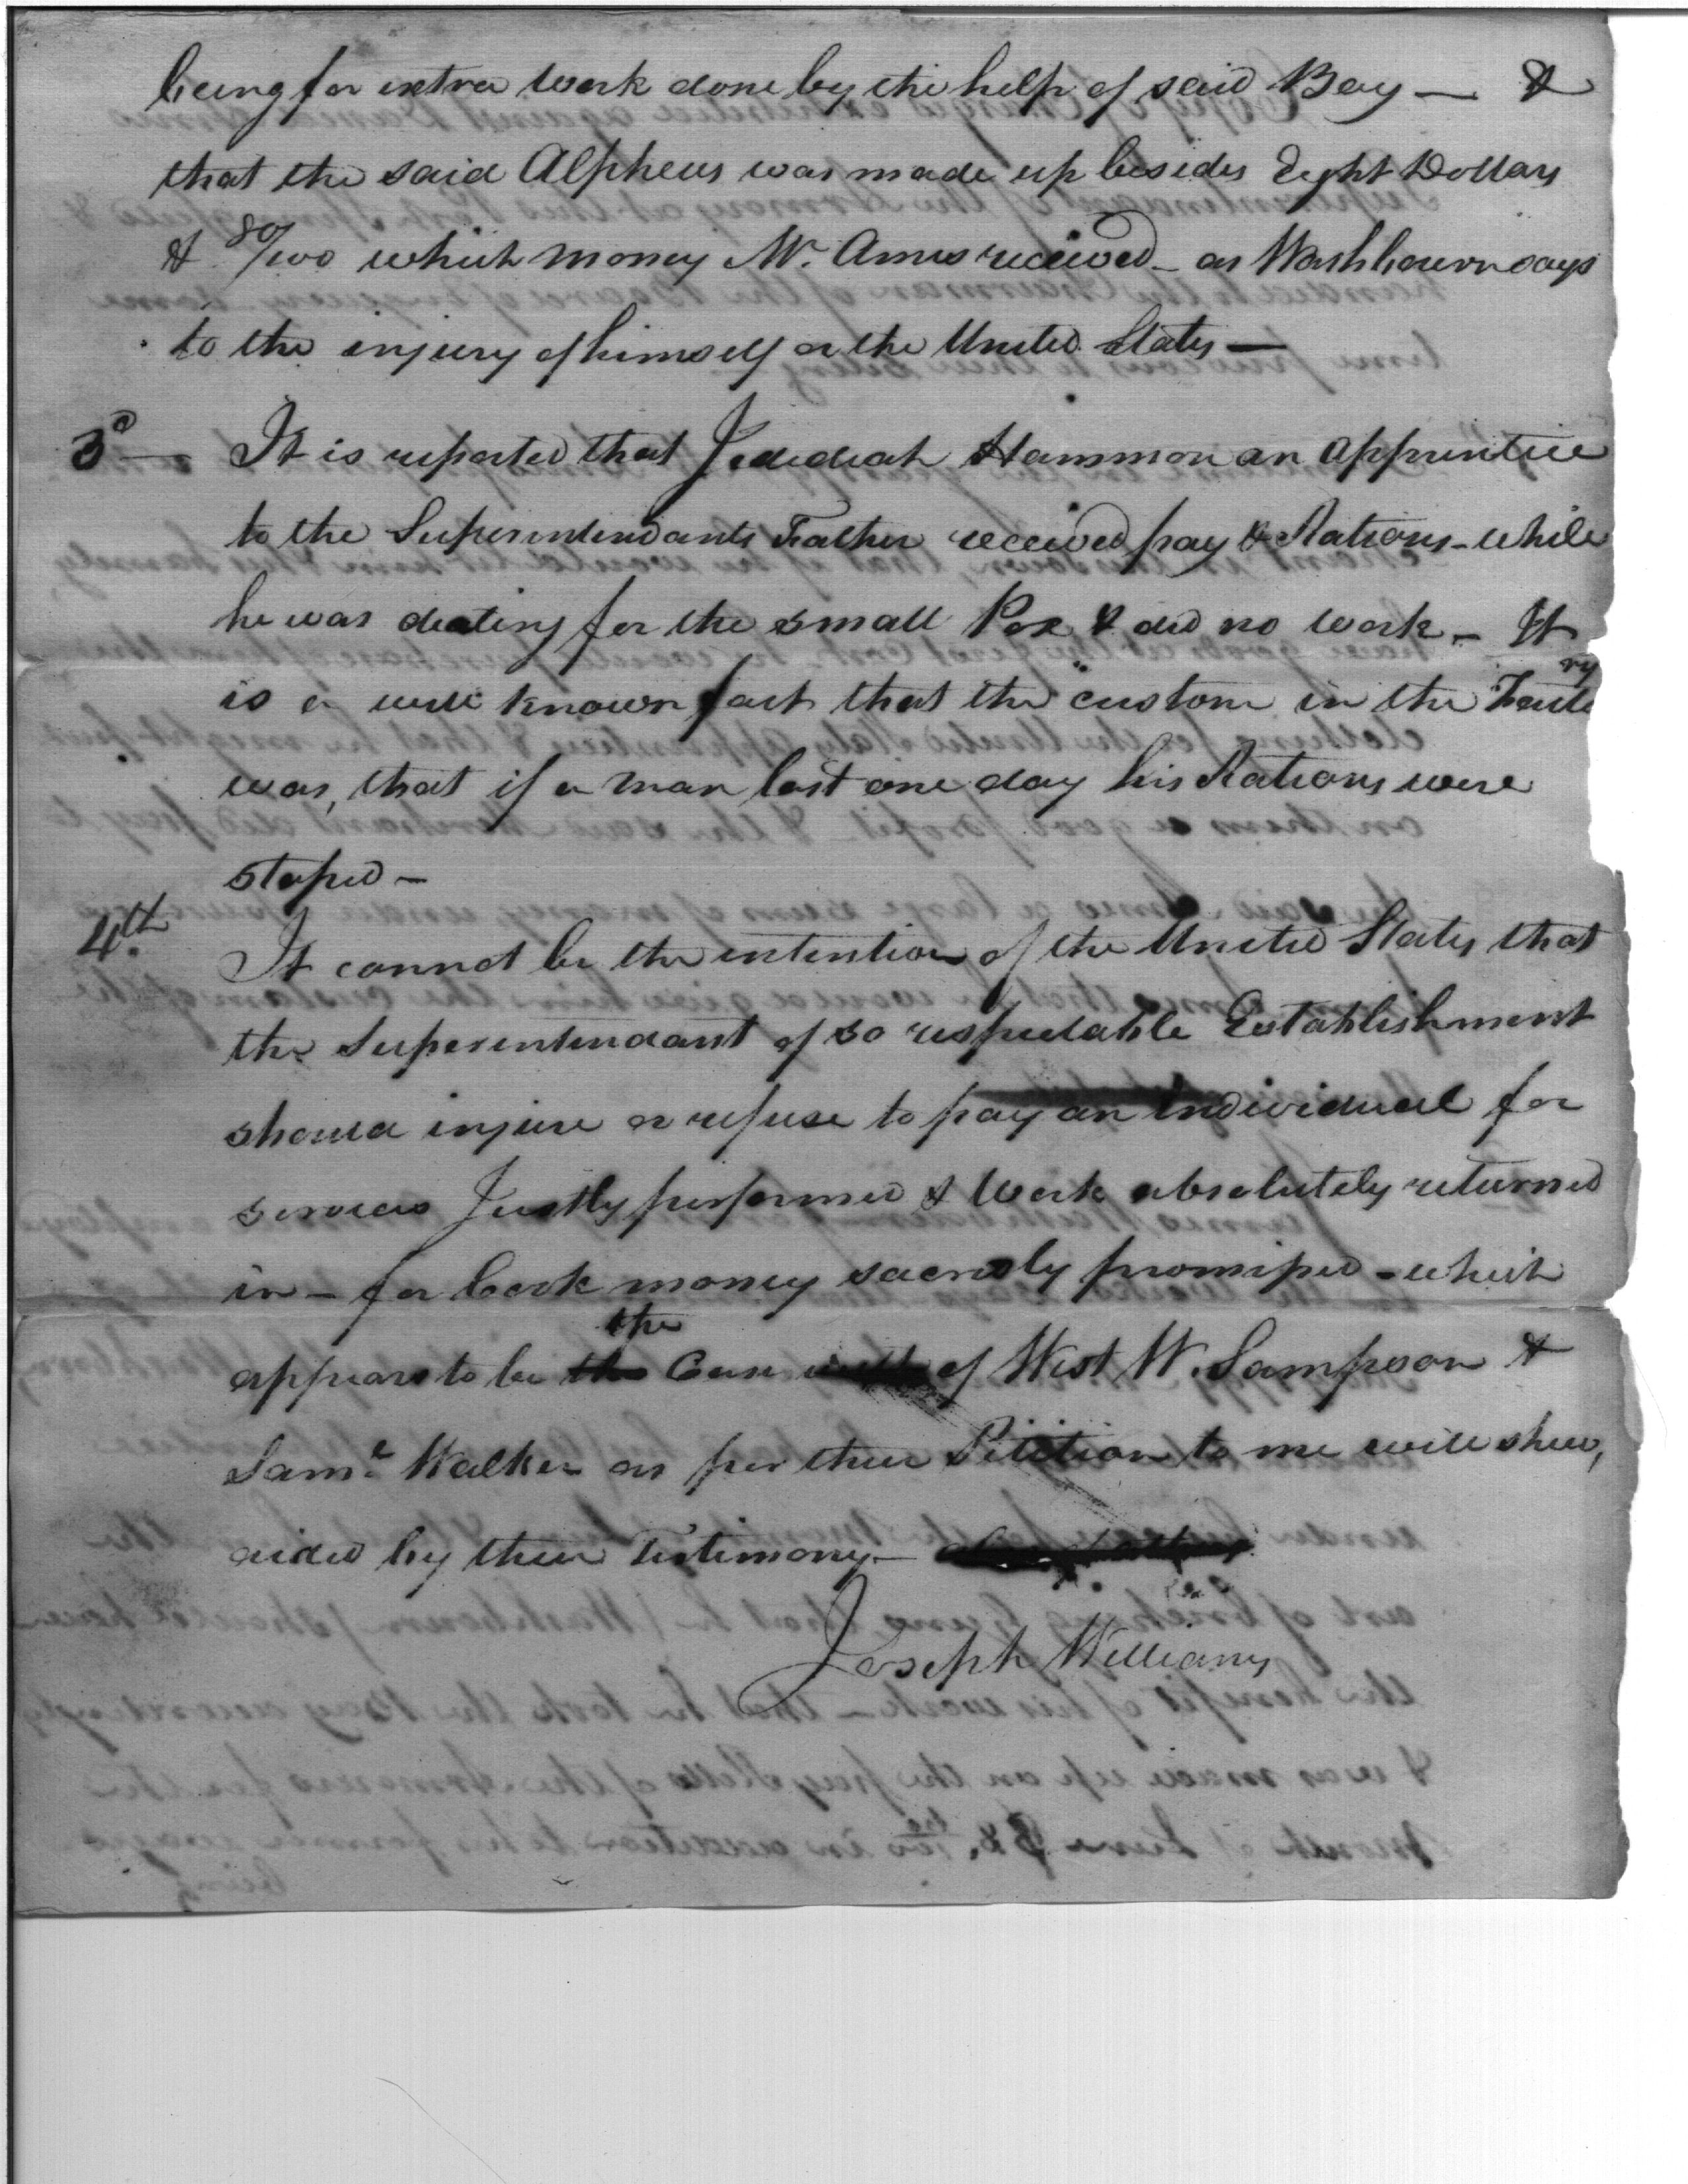 being for extra work done by the help of said Boy — &
that the said Alpheus was made up besides Eight Dollars
& 80/100 which money Mr. Ames received – as Washbourn says
to the injury of himself or the United States —
3d — It is reported that Jedediah Hammon an apprentice
to the Superintendants Father received pay & Rations – while
he was dieating for the small Pox & did no work – It
is a well known fact that the custom in the Facto ry
was, that if a man lost one day his Rations were
stoped –
4th. It cannot be the intention of the United States that
the Superintendant of so respectable Establishment
should injure or refuse to pay an individual for
services Justly performed & Work absolutely returned
in – for back money sacredly promised – which
the
appears to be the Case of West W. Sampson &
Saml Walker as per their Petition to me will shew,
aided by their Testimony –
Joseph Williams